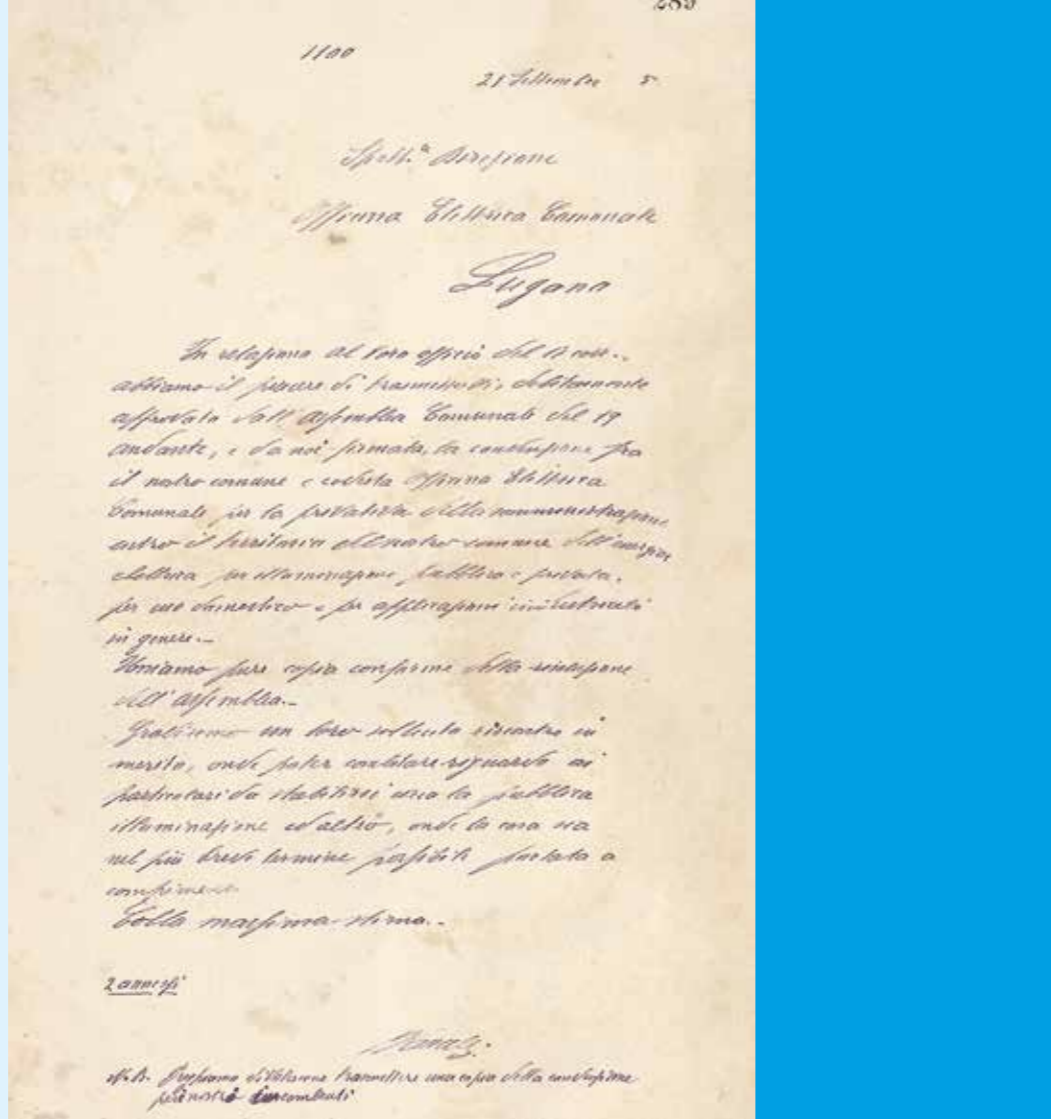 289
1100
21 Settembre 5
Spett.ª Direzione
Officina Elettrica Comunale
Lugano
In relazione al loro officio del corr..
abbiamo il piacere di trasmetterli, debitamente
approvata dall'assemblea Comunale del 19
andante, e da noi firmata, la convenzione fra
il nostro comune e codesta Officina Elettrica
Comunale per la privativa della somministrazione
entro il territorio del nostro comune dell'energia
elettrica per illuminazione pubblica e privata,
per uso domestico e per applicazioni industriali
in genere.-
Uniamo pure copia conforme della risoluzione
dell'assemblea.-
Gradiremo un loro sollecito riscontro in
merito, onde poter combinare riguardo ai
particolari da stabilirsi circa la pubblica
illuminazione ed altro, onde la cosa sia
nel più breve termine possibile portata a
compimento
Colla massima stima.-
2 annessi
N.B. Preghiamo di volerne trasmettere una copia della convenzione
pei nostri incombenti